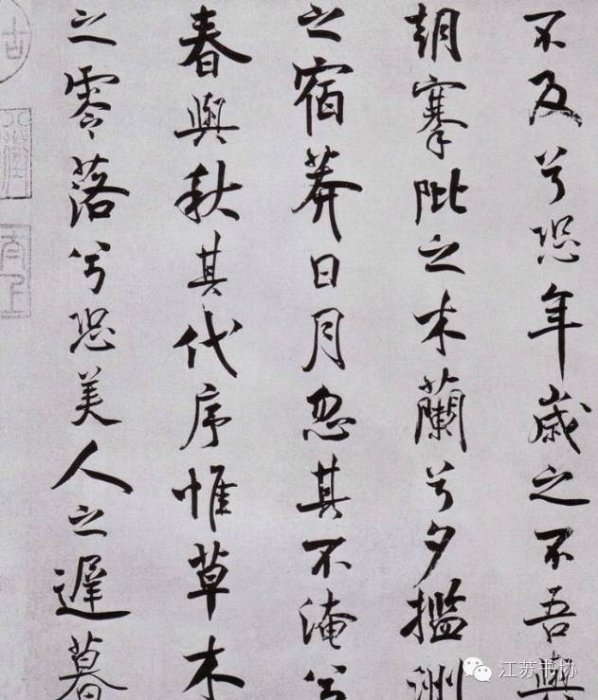 不及兮恐年歲之不吾與
朝搴阰之木蘭兮夕擥洲
之宿莽日月忽其不淹兮
春與秋其代序惟草木
之零落兮恐美人之遲暮
江苏书协